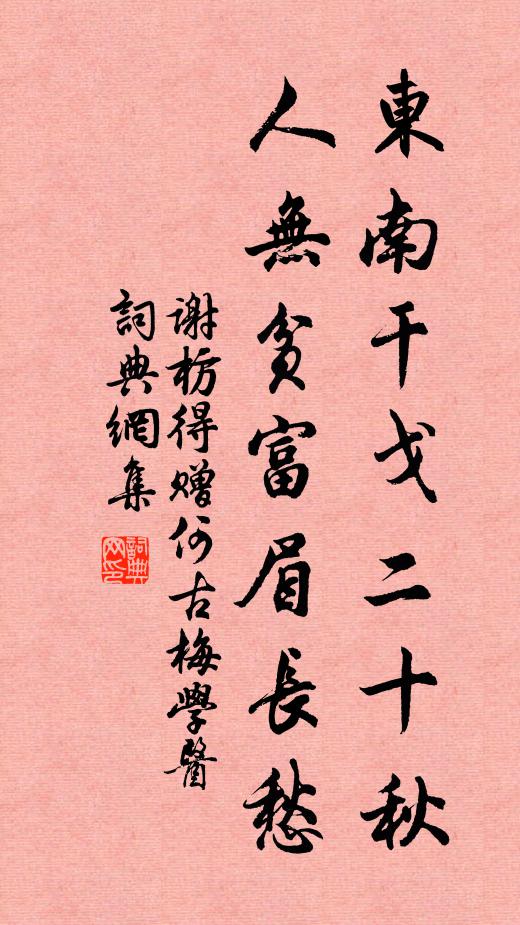 東南干戈二十秋
人無貧富眉長愁
谢枋得赠何古梅學醫
詞典網集
詞典网印